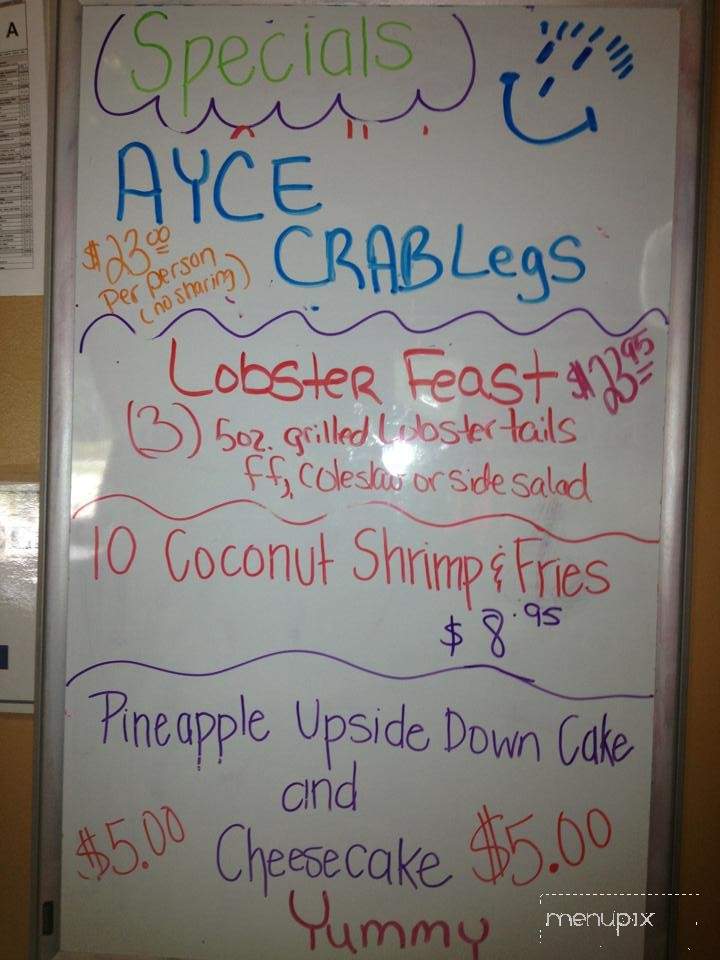 Specials
AYCE
CRAB Legs
$23.00
Per person
(no sharing)
Lobster Feast $23.95
(3) 5oz. grilled Lobster tails
ff, Coleslaw or side salad
10 Coconut Shrimp & Fries
$8.95
Pineapple Upside Down Cake
and
$5.00 Cheesecake $5.00
Yummy
menupix
A